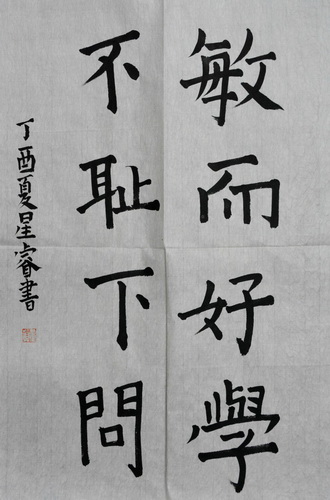 敏而好學
不耻下問
丁酉夏星睿書